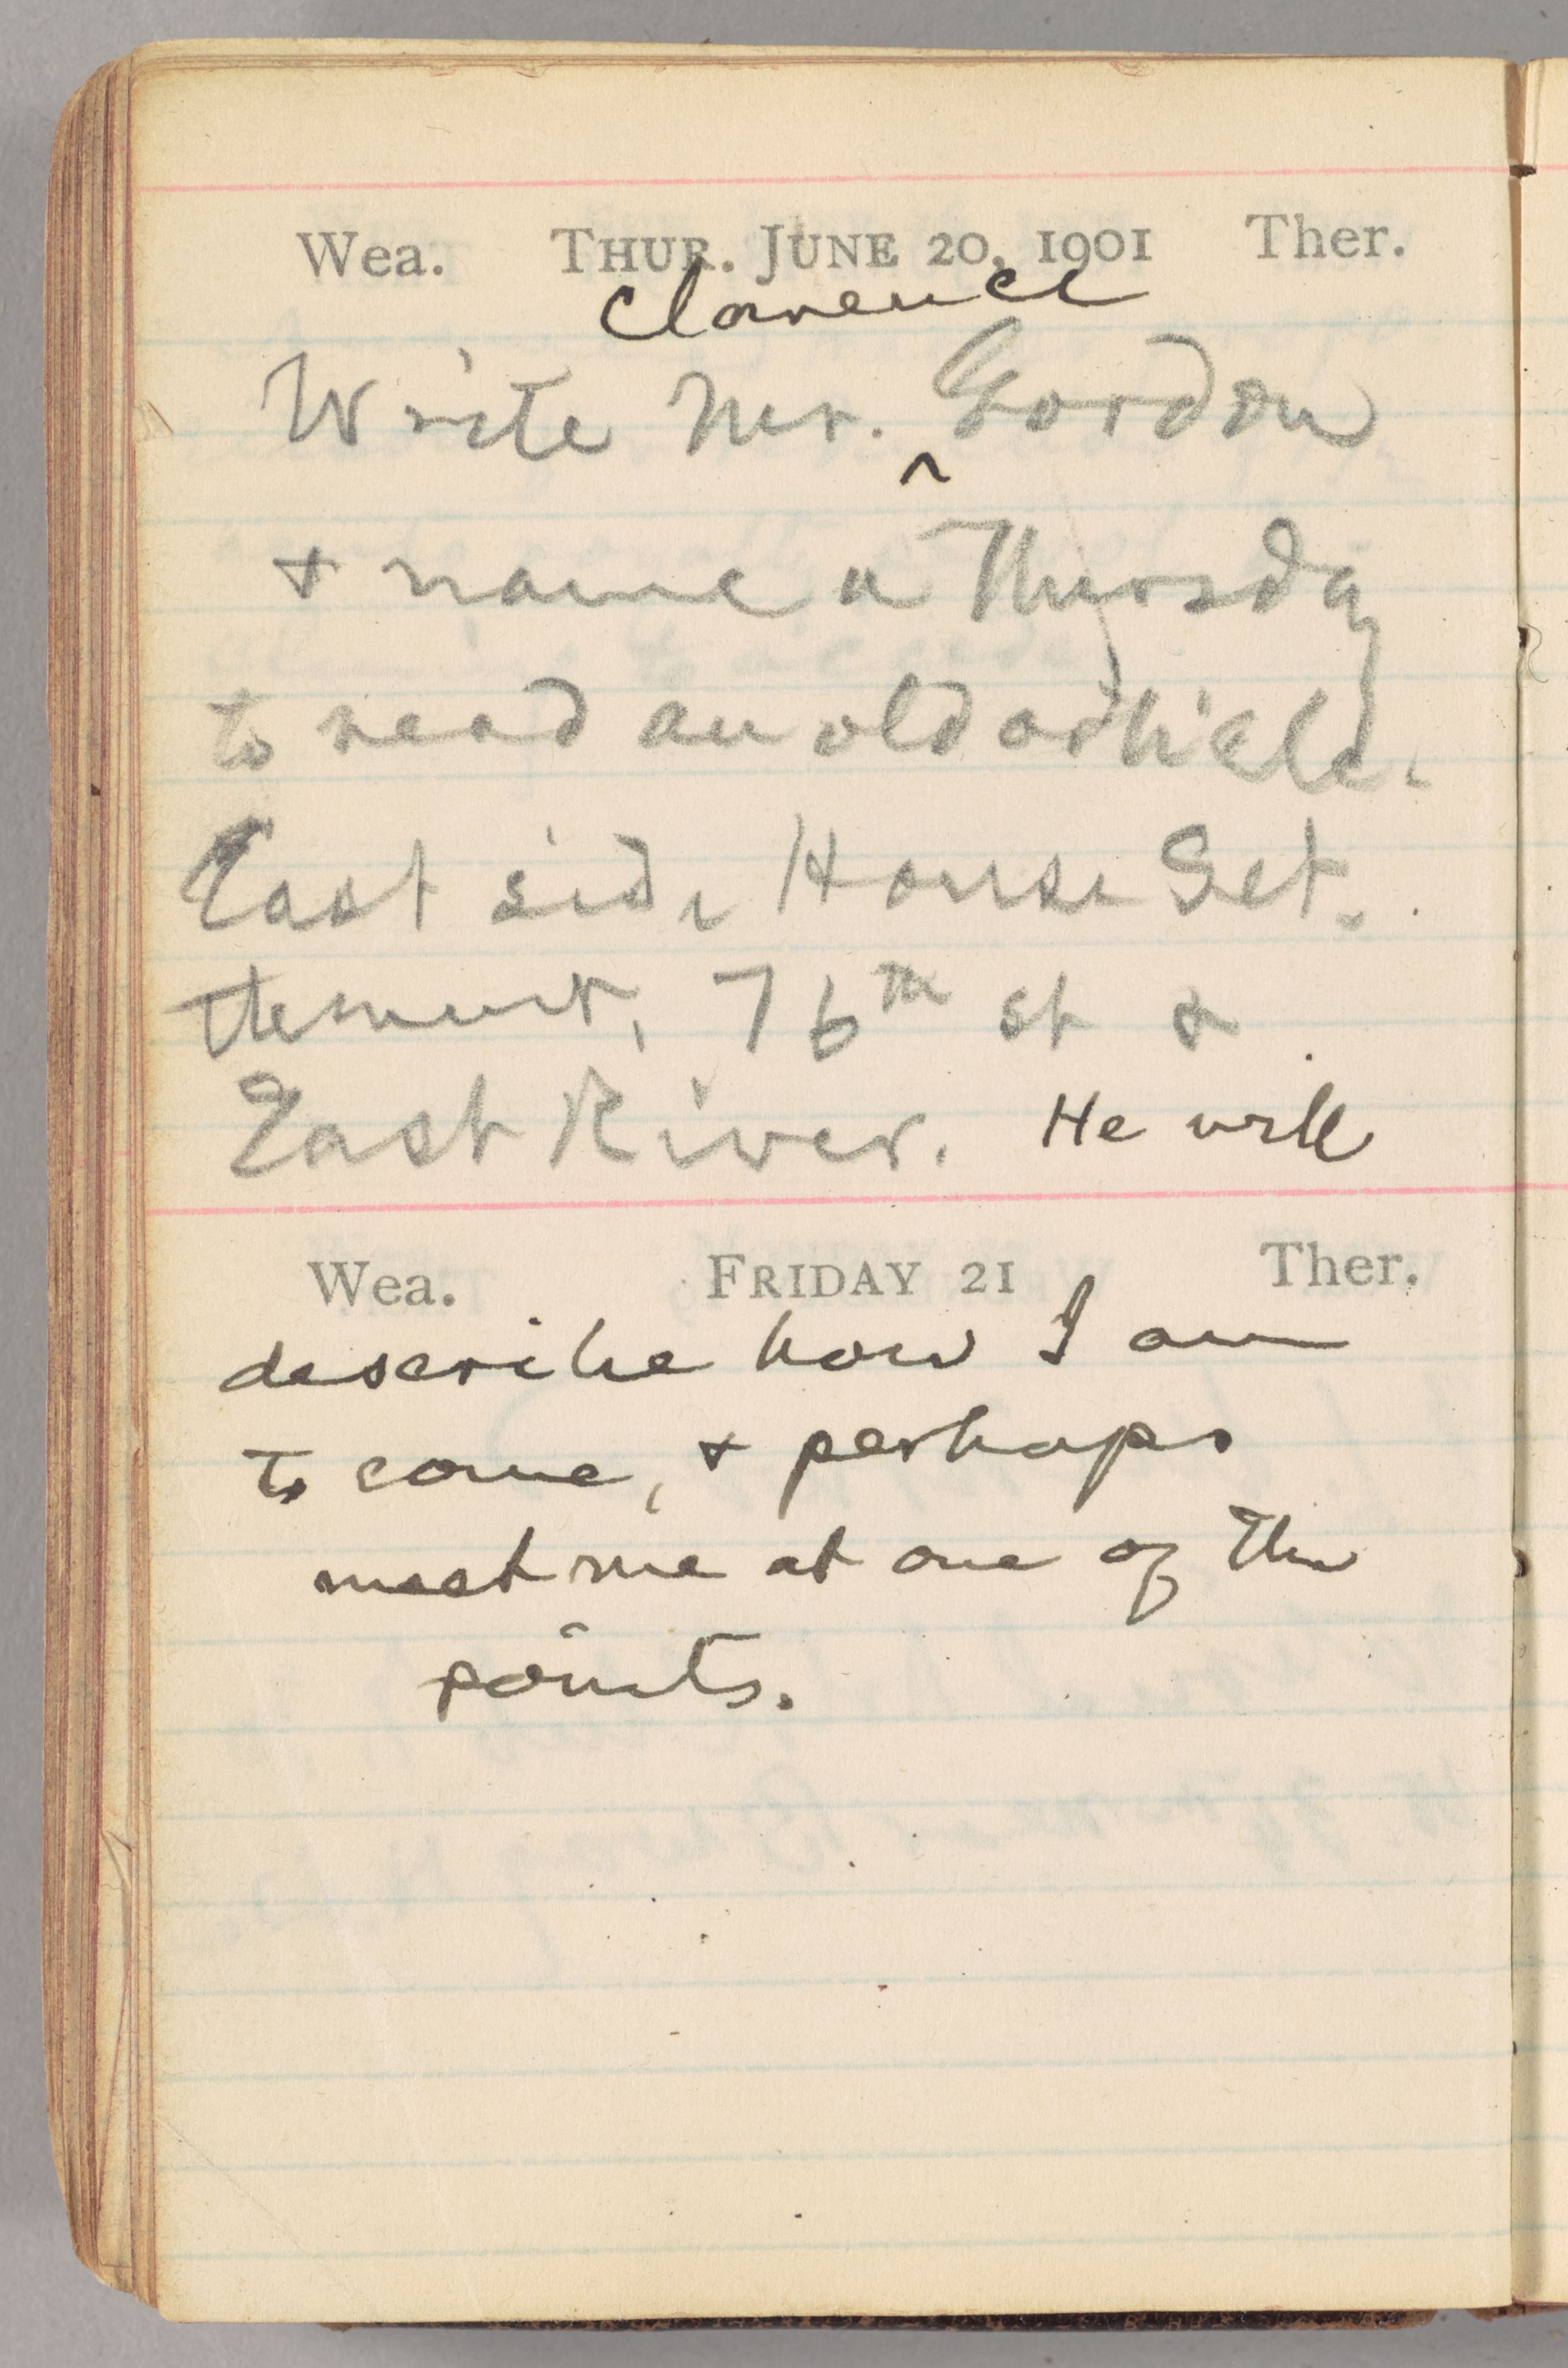 Wea. THUR. JUNE 20, 1901 Ther.
Clarence
Write Mr. ^ Gordon
& name a Thursday
to read an old article.
East side House Set-
tlement, 76th st &
East River. He will
Wea. FRIDAY 21 Ther.
describe how I am
to come, & perhaps
meet me at one of the
points.